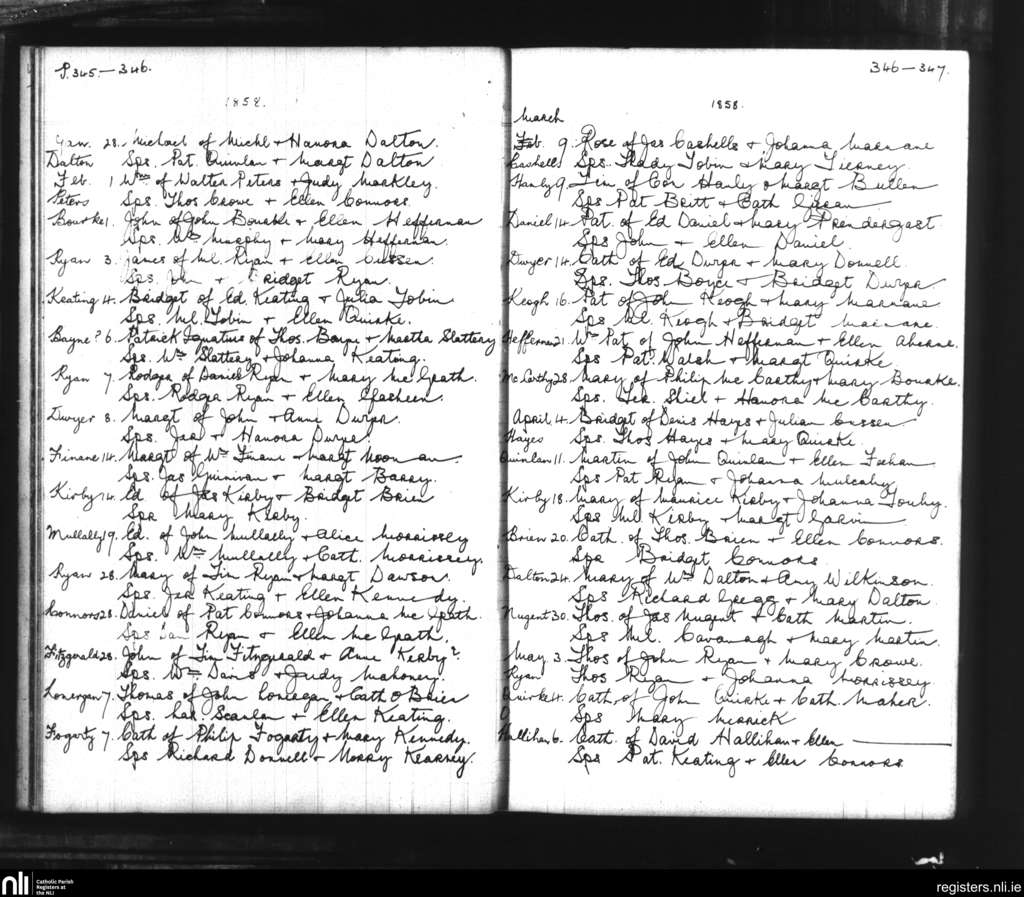 P.345–346.
1858.
Jan. 28. Michael of Michl + Hanora Dalton.
Dalton Sps. Pat. Quinlan + Margt Dalton
Feb. 1 Wm of Walter Peters + Judy Moakley.
Peters Sps. Thos Crowe + Ellen Connors.
Bourke 1. John of John Bourke + Ellen Heffernan
Sps. Wm Murphy + Mary Heffernan.
Ryan 3. James of Ml. Ryan + Ellen Cussen.
Sps. John + Bridget Ryan.
Keating 4. Bridget of Ed. Keating + Julia Tobin
Sps. Ml. Tobin + Ellen Quirke.
Bayne? 6. Patrick Ignatius of Thos. Bayne + Martha Slattery
Sps. Wm Slattery + Johanna Keating.
Ryan 7. Rodger of Daniel Ryan + Mary McGrath.
Sps. Rodger Ryan + Ellen
Dwyer 8. Margt of John + Anne Dwyer.
Sps. Jas + Hanora Dwyer.
Finane 14. Margt of Wm Finane + Margt Noonan.
Sps. Jas Guinivan + Margt Barry.
Kirby 14. Ed of Jas Kirby + Bridget Brien
Spr Mary Kirby.
Mullally 19. Ed. of John Mullally + Alice Morrissey
Sps. Wm Mullally + Cath. Morrissey.
Ryan 28. Mary of Tim Ryan + Margt Dawson.
Sps. Jas Keating + Ellen Kennedy.
Connors 28. Daniel of Pat Connors + Johanna McGrath.
Sps Dan Ryan + Ellen McGrath.
Fitzgerald 28. John of Tim Fitzgerald + Anne Kerby?
Sps. Wm Davis + Judy Mahoney.
Lonergan 7. Thomas of John Lonegan + Cath O'Brien
Sps. Scanlan + Ellen Keating.
Fogarty 7. Cath of Philip Fogarty + Mary Kennedy.
Sps Richard Donnell + Morry Kearney.
346–347.
1858.
March
Feb. 9. Rose of Jas Cashells + Johanna Marnane
Cashells Sps. Thady Tobin + Mary Tierney.
Hanly 9. Tim of Cor Hanly + Margt Bullen
Sps Pat Britt + Cath
Daniel 14. Pat. of Ed Daniel + Mary Prendergast.
Sps John + Ellen Daniel.
Dwyer 14. Cath of Ed Dwyer + Mary Donnell.
Sps. Thos Boyce + Bridget Dwyer
Keogh 16. Pat of John Keogh + Mary Marnane
Sps Ml. Keogh + Bridget Marnane.
Heffernan 21. Wm Pat. of John Heffernan + Ellen Aherne.
Sps Pat. Walsh + Margt Quirke
McCarthy 28. Mary of Philip McCarthy + Mary Bourke.
Sps. Jer. Shiel + Hanora McCarthy.
April 4. Bridget of Denis Hayes + Julian Cussen
Hayes Sps. Thos Hayes + Mary Quirke.
Quinlan 11. Martin of John Quinlan + Ellen Feehan
Sps Pat Ryan + Johanna Mulcahy
Kirby 18. Mary of Maurice Kirby + Johanna Touhy.
Sps Ml Kirby + Margt Garvin
Brien 20. Cath. of Thos. Brien + Ellen Connors.
Spr Bridget Connors.
Dalton 24. Mary of Wm Dalton + Any Wilkinson.
Sps Richard Gregg + Mary Dalton.
Nugent 30. Thos of Jas Nugent + Cath Martin.
Sps Ml. Cavanagh + Mary Martin.
May 3. Thos of John Ryan + Mary Crowe.
Ryan Thos Ryan + Johanna Morrissey.
Quirke 4. Cath. of John Quirke + Cath. Maher.
Sps Mary Merrick
Hallihan 6. Cath. of David Hallihan + Ellen ————
Sps Pat. Keating + Ellen Connors
nli
Catholic Parish
Registers at
the NLI
registers.nli.ie